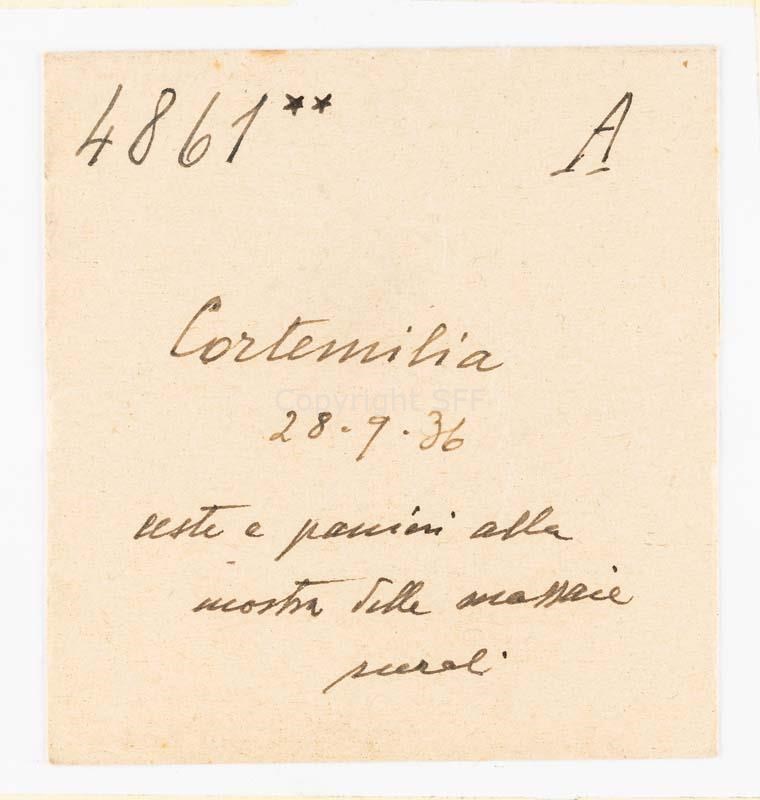 4861** A
Cortemilia
Copyright SFF
28.9.36
ceste e panieri alla
mostra delle massaie
rurali